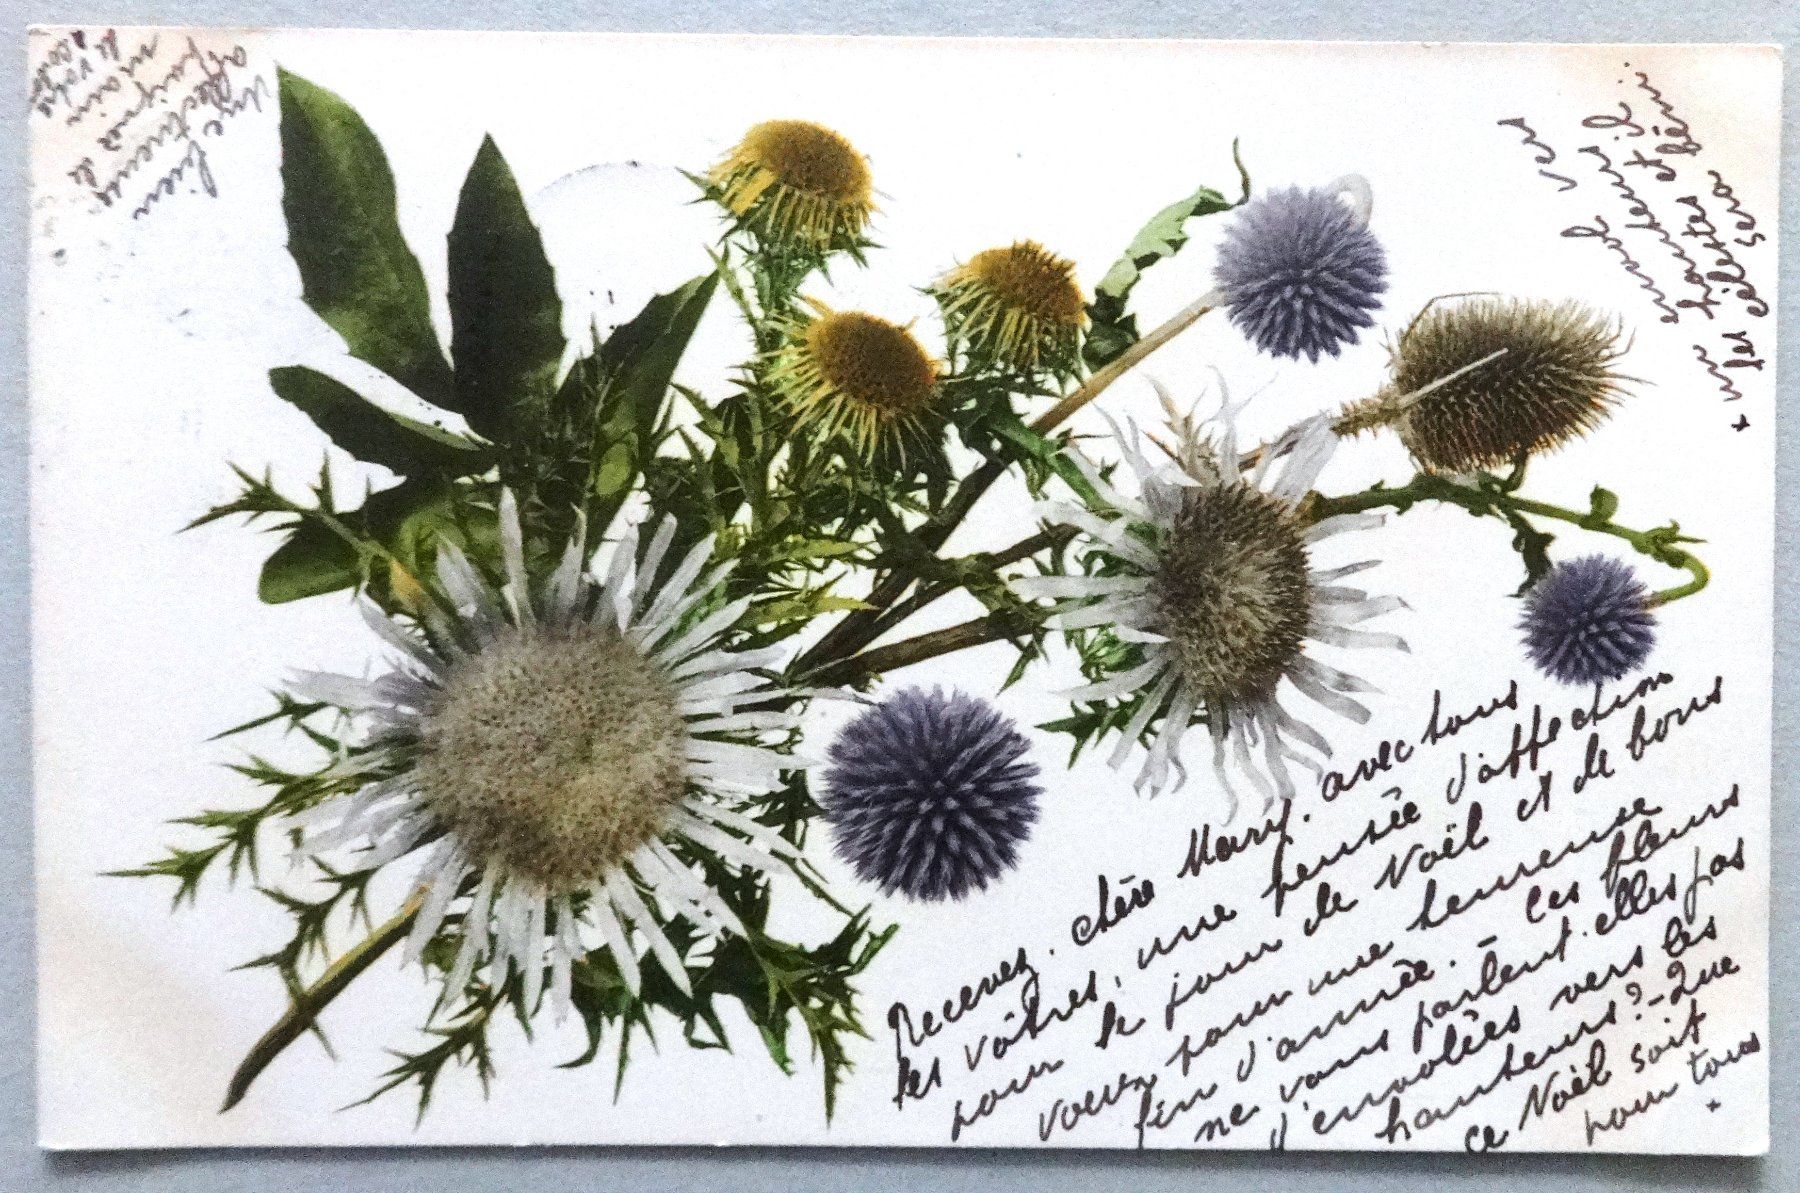 Recevez, chère Mary, avec tous
les vôtres, une pensée d'affection
pour le jour de Noël et de bons
voeux pour une heureuse
fin d'année. - Ces fleurs
ne vous parlent-elles pas
d'envolées vers les
hauteurs? - Que
ce Noël soit
pour tous
+
+ un
vers
les célestes et il
sera béni
Une bien
affectueuse
poignée de
main
de votre